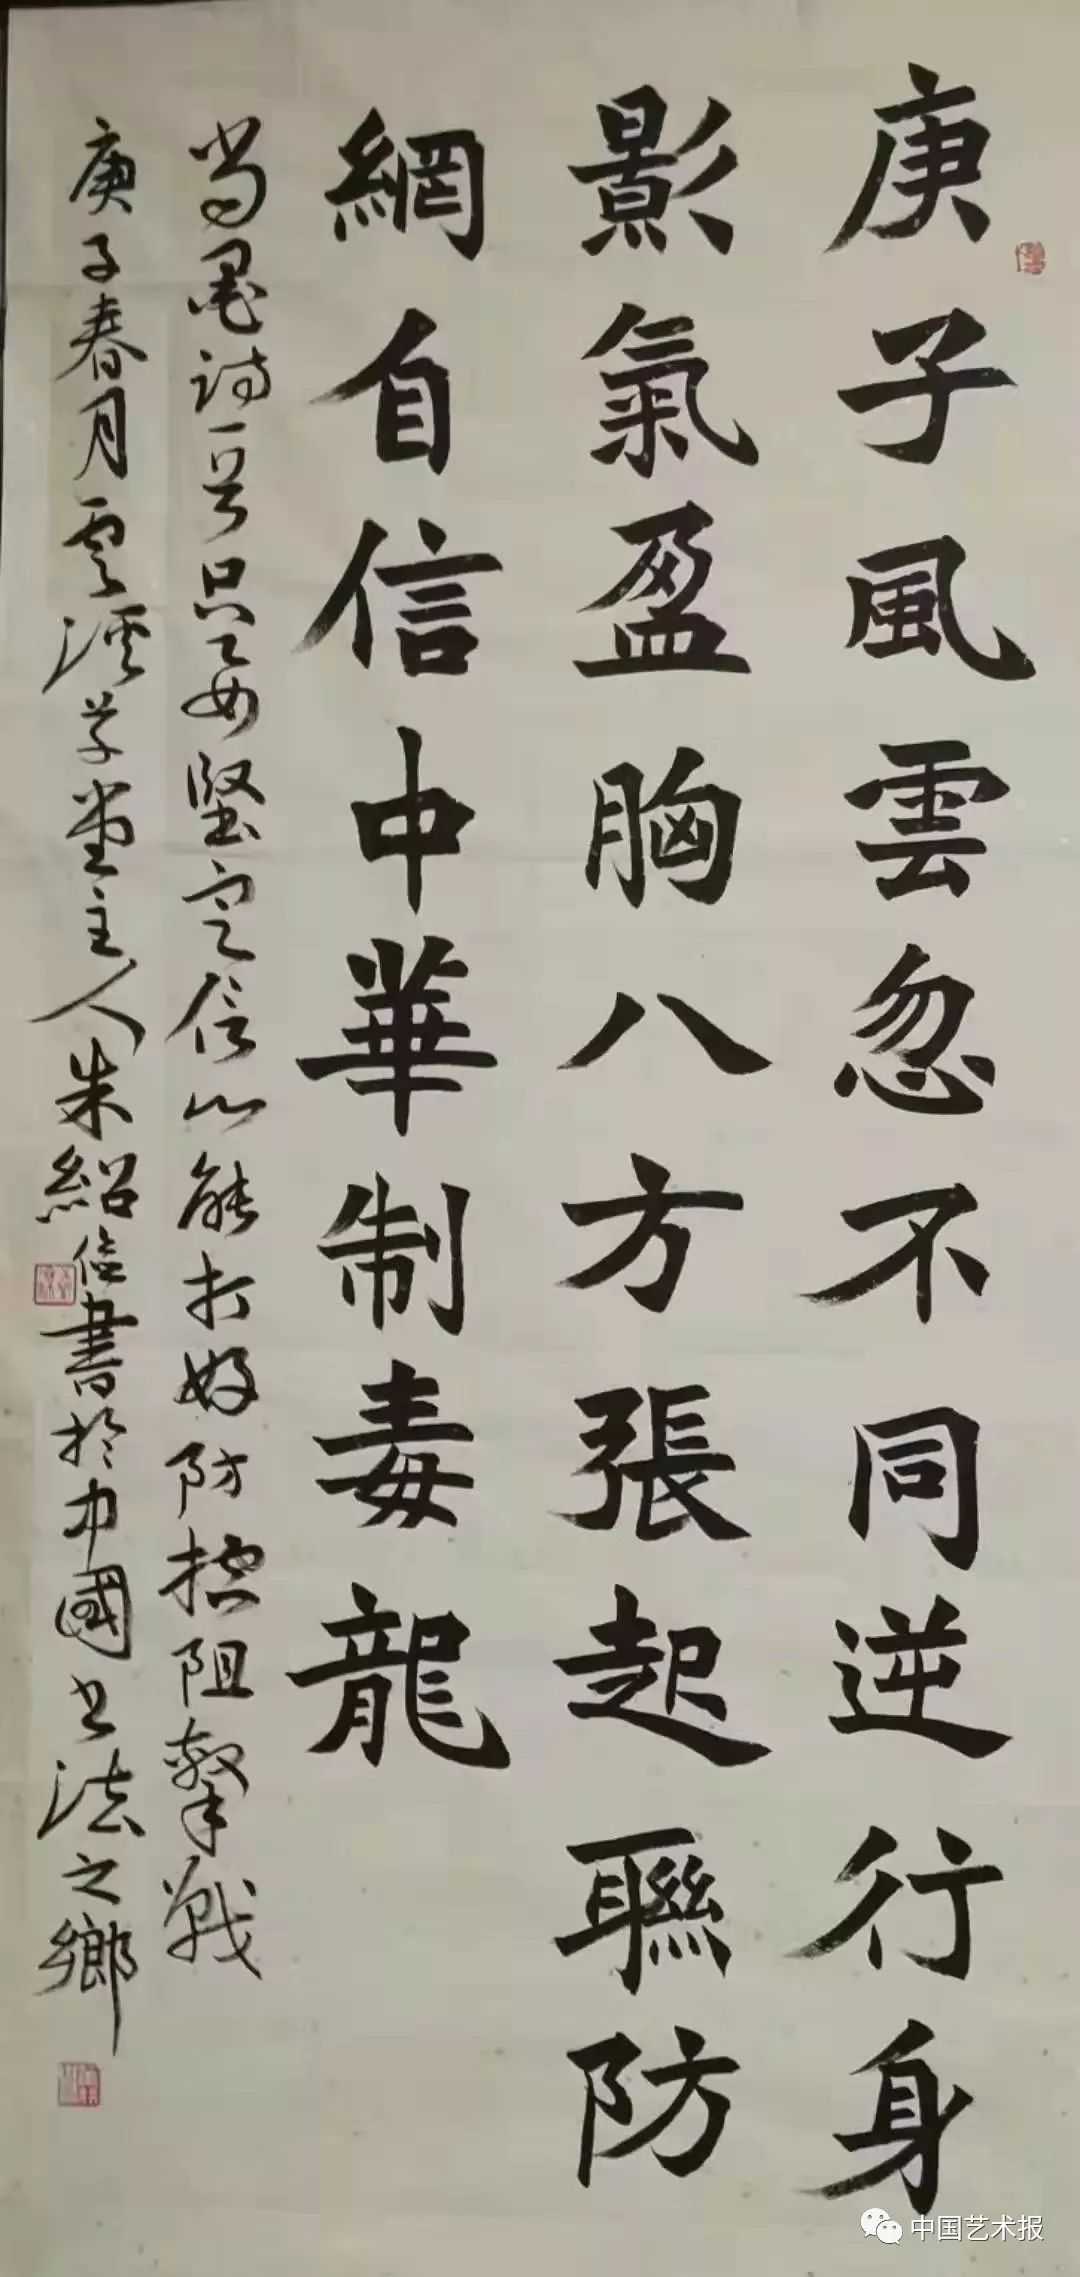 庚子風雲忽不同逆行身
影氣盈胸八方張起聯防
網自信中華制毒龍
尚墨詩一首只要堅定信心能打好防控阻擊戰
庚子春月雲溪草堂主人朱紹信書於中國書法之鄉
中国艺术报